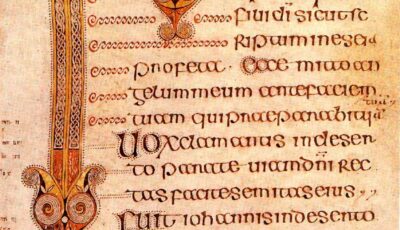 fili di sicut sc
riptum in eseia
profeta. Ecce mitto an
gelum meum ante faciem
tuam qui praeparabit
Uox clamantis in deser
to parate uiam dni rec
tas facite semitas eius
Fuit iohannis in deserto